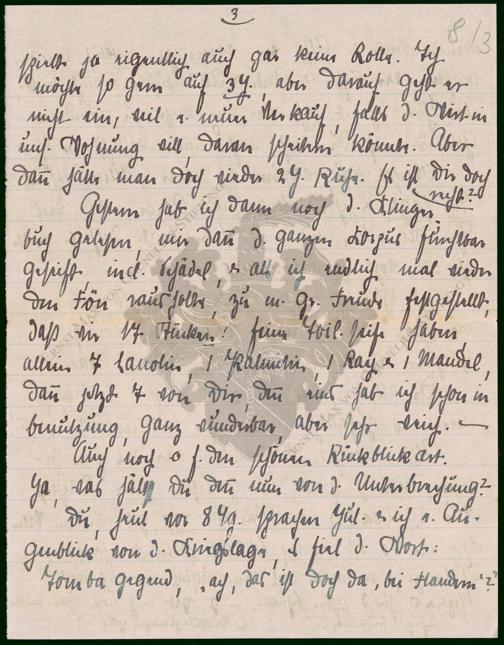 3
8/3
spielt ja eigentlich auch gar keine Rolle. Ich
möchte so gern auf 3 J., aber darauf geht er
nicht ein, weil e. neuer Verkauf, falls d. Wirt in
uns. Wohnung will, daran scheitern könnte. Aber
dann hätte man doch wieder 2 J. Ruhe. Es ist Dir doch
recht?
Gestern hab ich dann noch d. Klinger
buch gelesen, mir dann d. ganzen Korpus furchtbar
geseift incl. Schädel, & als ich endlich mal wieder
den Fön rausholte, zu m. gr. Freude festgestellt,
daß wir 17 Stücken! feine Toil. seife haben,
allein 7 Lanolin, 1 1 Kaye 1 Mandel,
dann jetzt 7 von Dir den eins hab ich schon in
benutzung, ganz wunderbar, aber sehr weich. —
Auch noch f. den schönen Rückblickart.
Ja, was hälst Du denn nun von d. Unterbrechung?
Du, heut vor 8 Tg. sprachen Jul. & ich e. Au-
genblick von d. Kriegslage, es fiel d. Wort:
Somba gegend, „ach, das ist doch da, bei Flandern"?